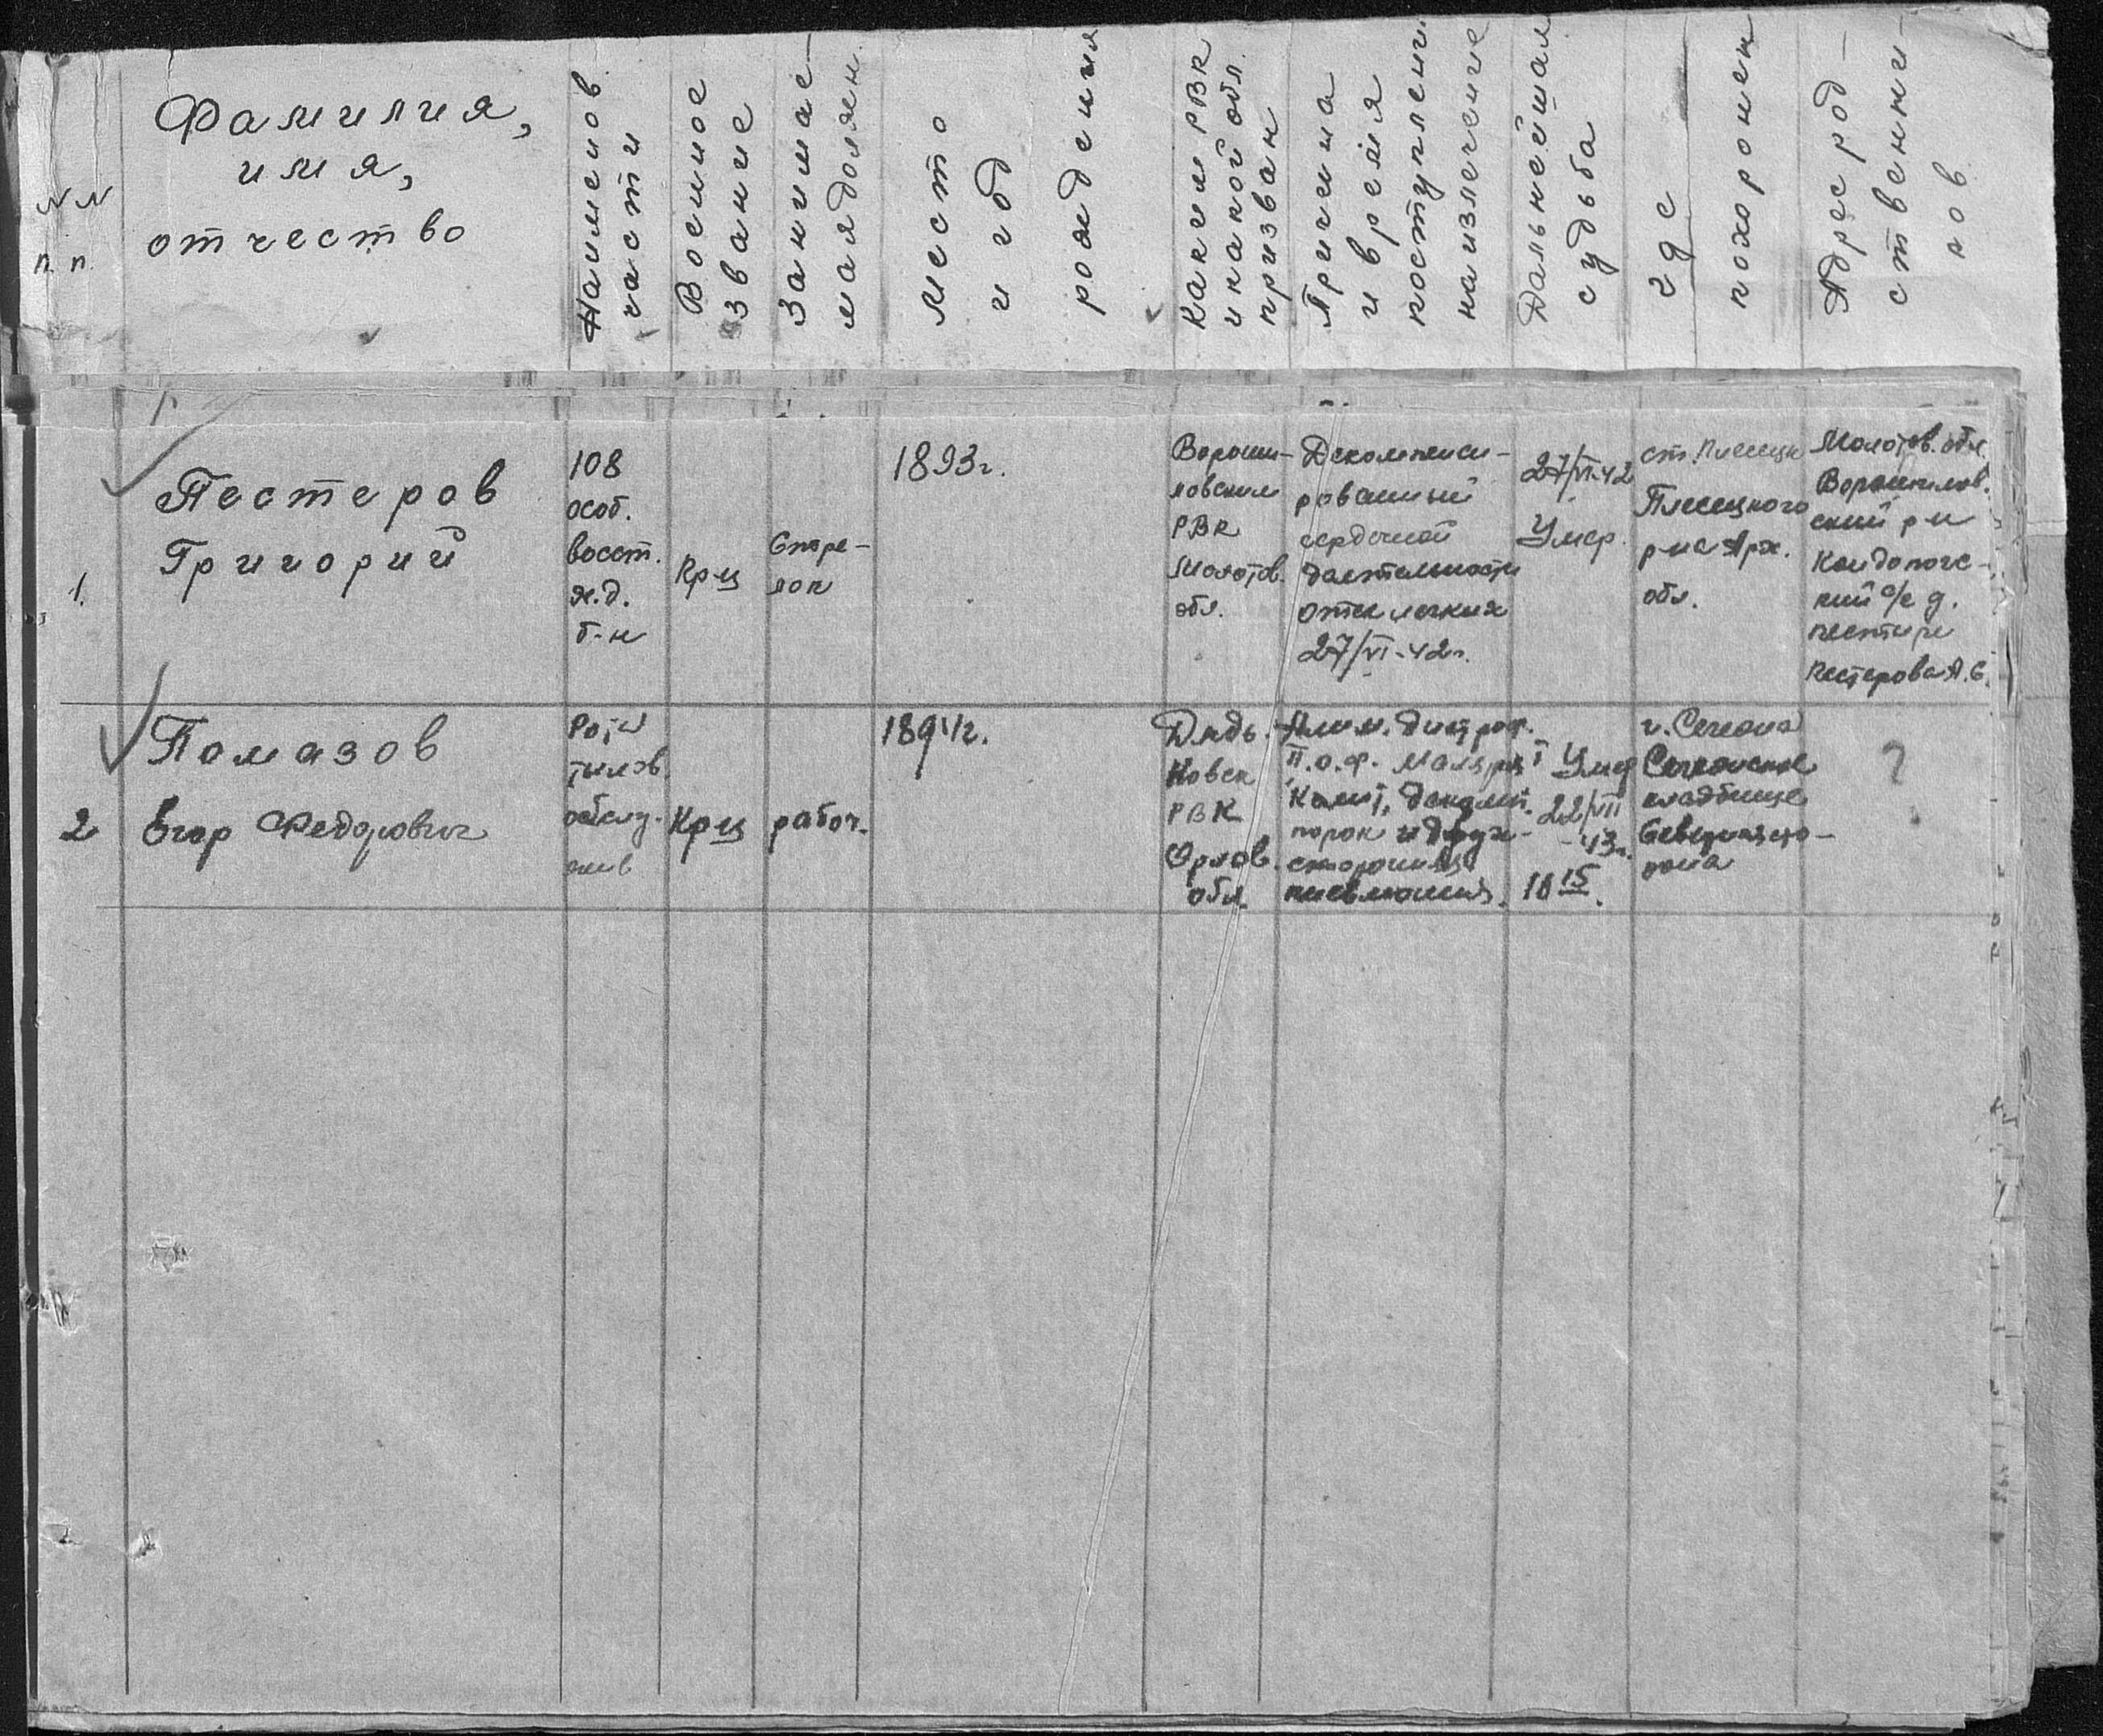 NN
п.п.
Фамилия,
имя,
отчество
Наименов
части
Военное
звание
Занимае-
мая должн.
Место
и год
рождения
Каким РВК
и какой обл.
призван
Причина
и время
поступлени
на излечение
Дальнейшая
судьба
где
похоронен
Адрес род-
ственни-
ков
1.
Пестеров
Григорий
108
особ.
восст.
ж.д.
б-н
Кр-ц
Стре-
лок
1893г.
Вороши-
ловским
РВК
Молотов.
обл.
Декомпенси-
рованный
сердечной
деятельности
отек легких
27/VI-42г.
27/VI-42
Умер.
ст. Плесецк
Плесецкого
р-на Арх.
обл.
Молотов. обл.
Ворошилов.
ский р-н
кий с/с д.
Пестерова А.С.
2
Помазов
Егор Федорович
Роты
тылов.
обслу-
жив
Кр-ц
рабоч.
1891г.
Дядь-
ковск
РВК
Орлов.
обл.
Алим. дистроф.
II. о.ф. Маляр.
порок и двух-
сторонняя
пневмония.
Умер
22/VII
-43г.
18 15.
кладбище
?